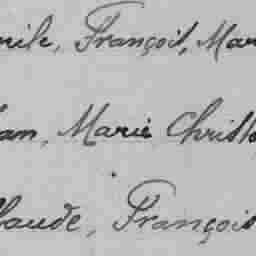 mile, François, Mar
an, Marie Christo
laude, François